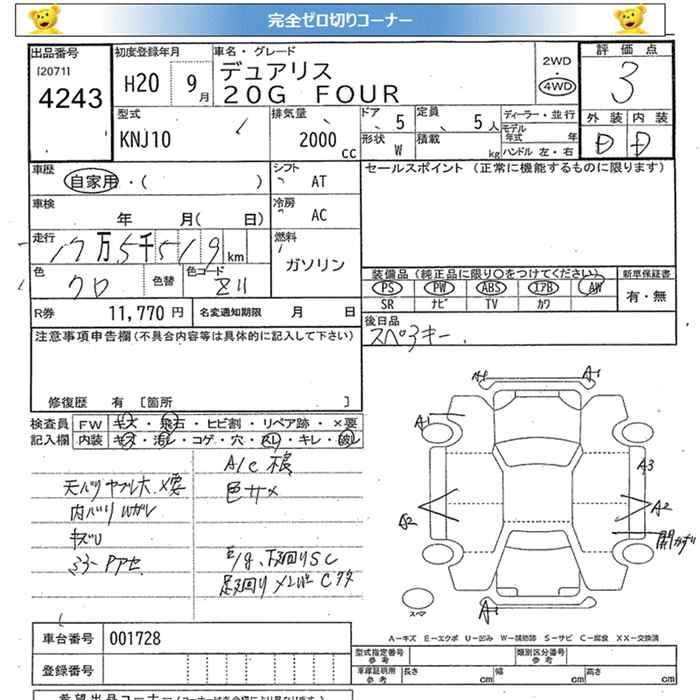 完全ゼロ切りコーナー
出品番号
(2071)
4243
初度登録年月
H20 9月
車名・グレード
デュアリス
20G FOUR
2WD
4WD
評価点
3
外装 内装
D D
型式
KNJ10
排気量
2000
cc
ドア 5
定員 5人
形状 W
積載 kg
ディーラー・並行
モデル年式 年
ハンドル 左・右
車歴
自家用・( )
シフト
AT
セールスポイント (正常に機能するものに限ります)
車検
年 月( 日)
冷房
AC
走行
17万5千519km
燃料
ガソリン
色
クロ
色替
色コード
Z11
装備品 (純正品に限り○をつけてください)
PS PW ABS エアB AW
SR ナビ TV カワ
新車保証書
有・無
R券 11,770 円
名変通知期限 月 日
後日品
スペ3キー.
注意事項申告欄 (不具合内容等は具体的に記入して下さい)
修復歴 有 [箇所 ]
検査員
記入欄
FW キズ・飛石・ヒビ割・リペア跡・×要
内装 キズ・汚レ・コゲ・穴・スレ・キレ・破レ
A/C
天バリヤブレ大 ×要
色サメ
内バリ
キズU
E/g、下廻りSC
A1 A1
A1
A3
A2 A2
スペア
A1
A-キズ E-エクボ U-凹み W-補修跡 S-サビ C-腐食 XX-交換済
車台番号 001728
登録番号
型式指定番号
参考
類別区分番号
参考
車庫証明用
参考
長さ cm
幅 cm
高さ cm
希望出品コーナー